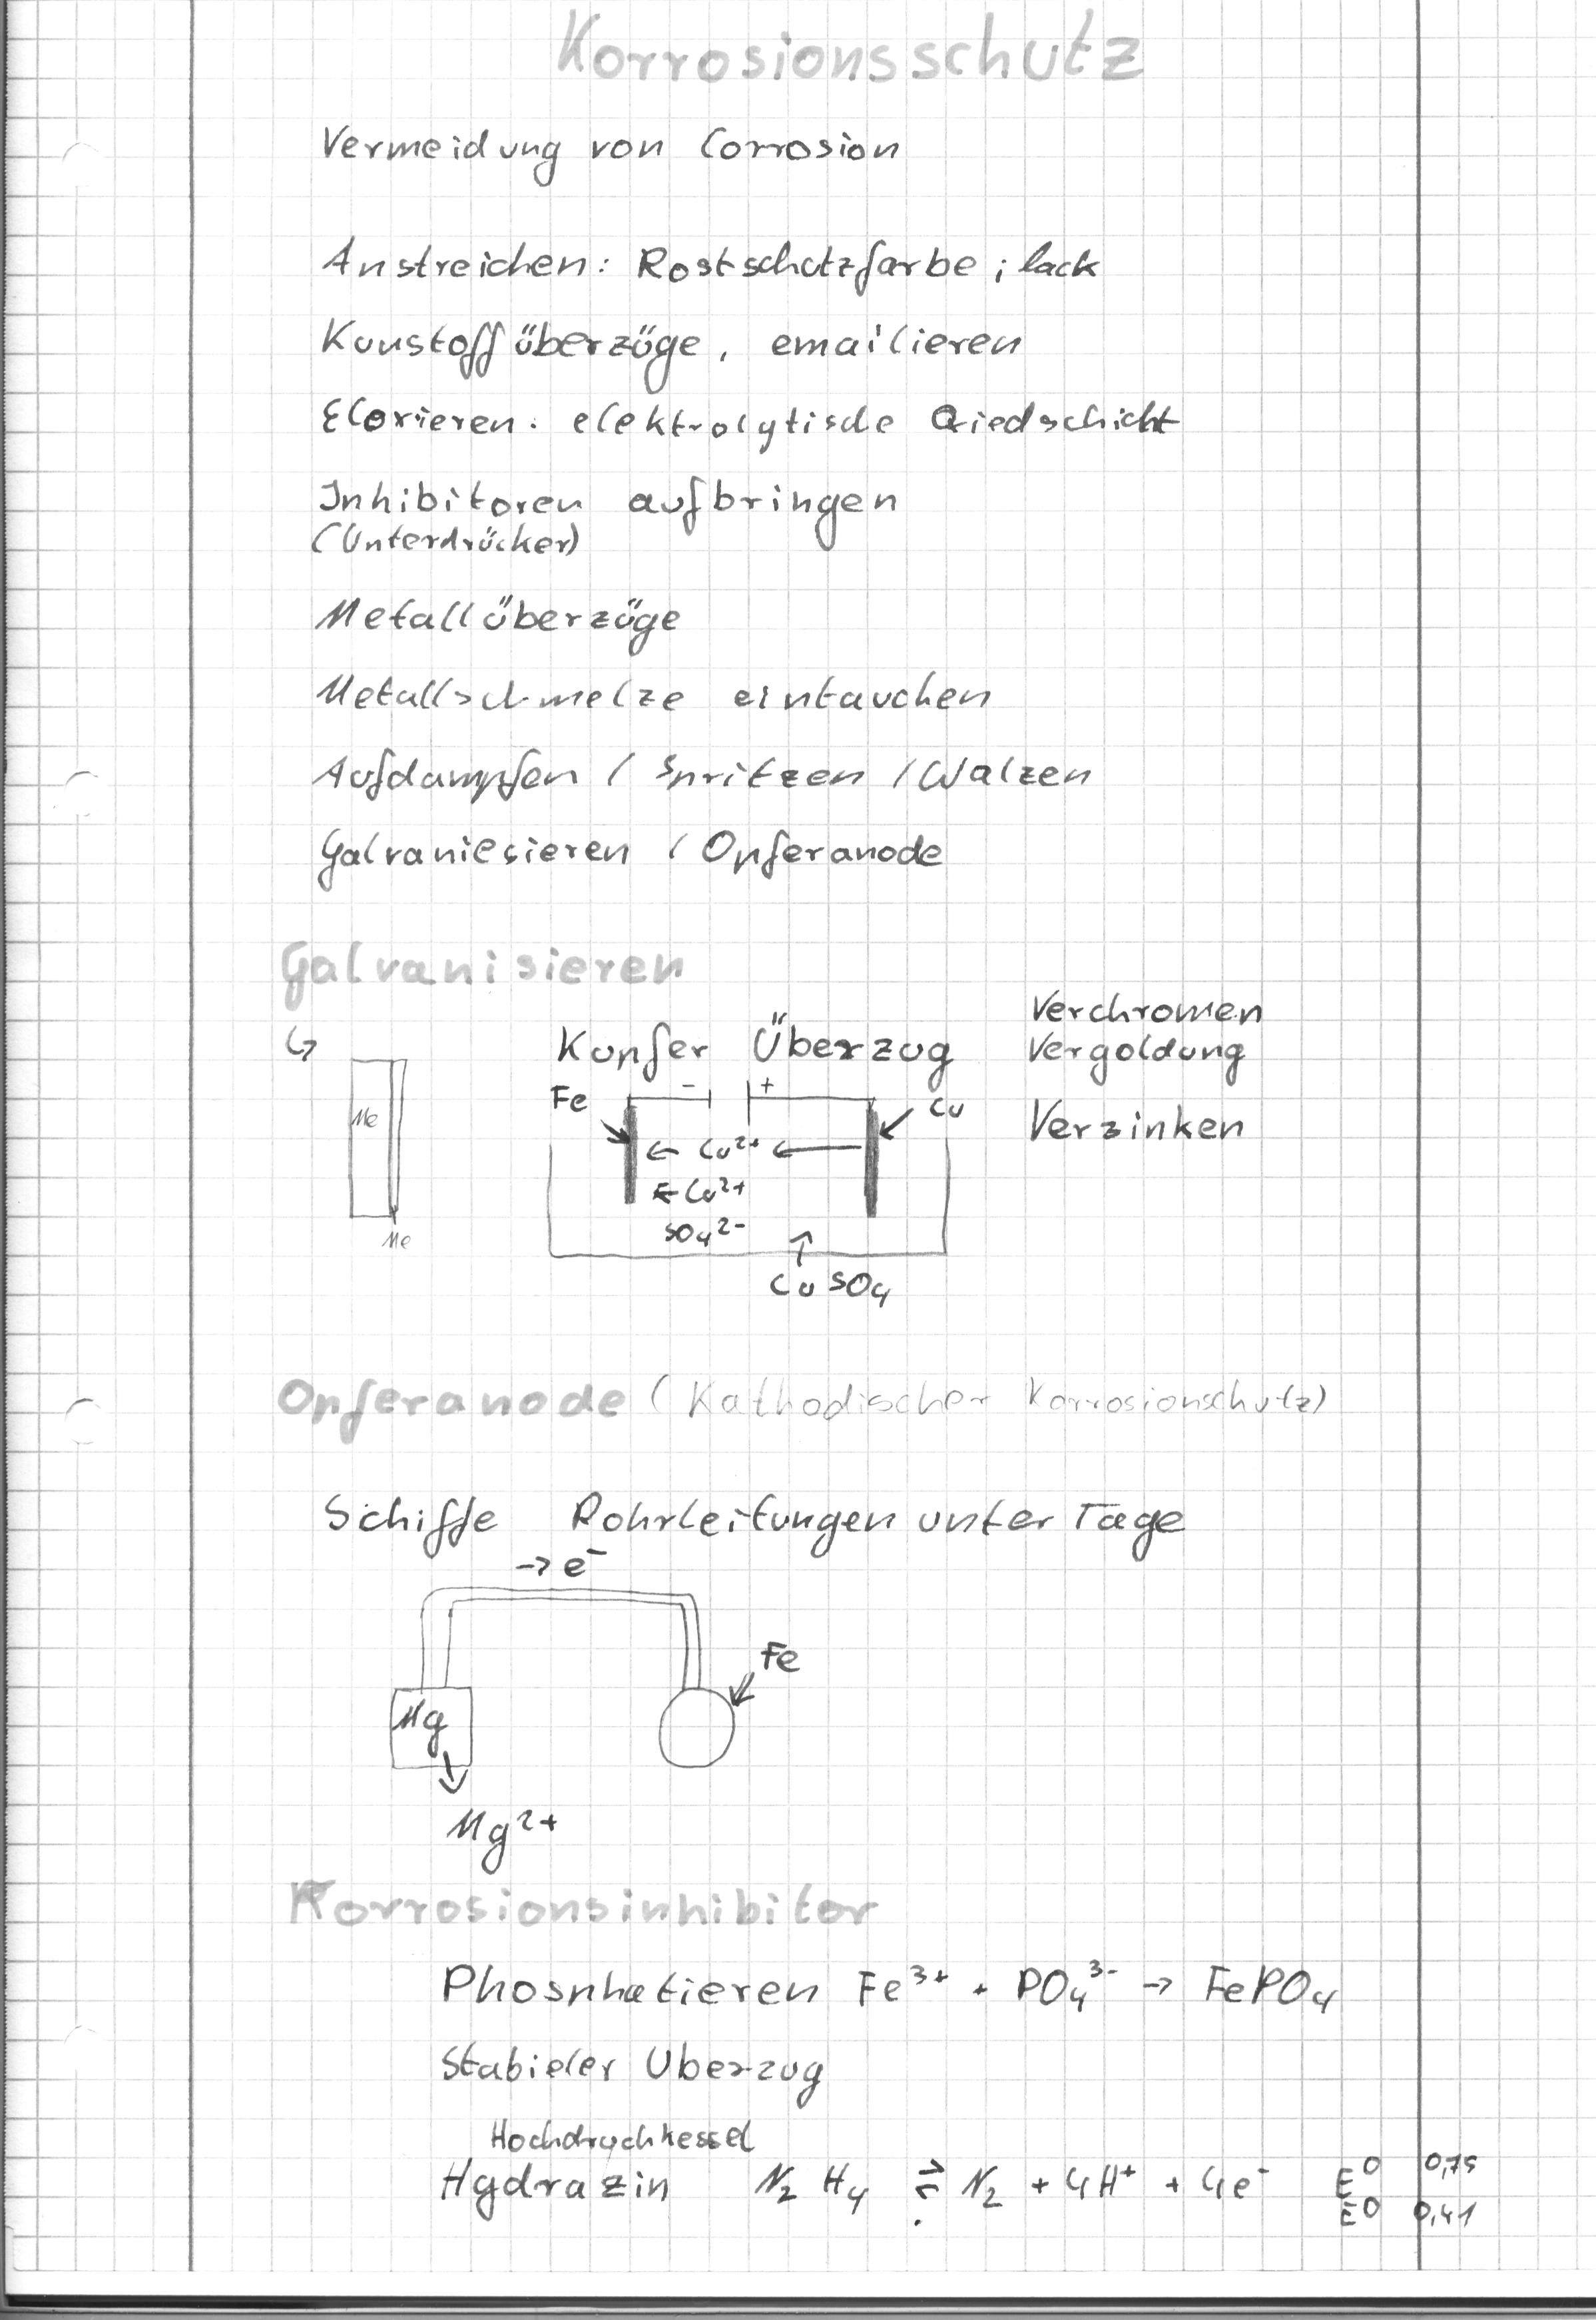 Korrosionsschutz
Vermeidung von Corrosion
Anstreichen: Rostschutzfarbe ; lack
Kunstoffüberzüge, emailieren
Eloxieren. elektrolytische
Inhibitoren aufbringen
(Unterdrücker)
Metallüberzüge
Metallschmelze eintauchen
Aufdampfen / Spritzen / Walzen
Galvaniesieren / Opferanode
Galvanisieren
↳ Kupfer Überzug
Verchromen
Vergoldung
Verzinken
- +
Fe
Cu
Me
← Cu²⁺ ←
← Cu²⁺
SO₄²⁻
Me
CuSO₄
Opferanode (Kathodischer Korrosionschutz)
Schiffe Rohrleitungen unter Tage
→ e⁻
Fe
Mg
Mg²⁺
Korrosionsinhibitor
Phosphatieren Fe³⁺ + PO₄³⁻ → FePO₄
Stabieler Uberzug
Hochdruckkessel
Hydrazin N₂H₄ ⇌ N₂ + 4H⁺ + 4e⁻ E⁰ 0,75
E⁰ 0,41